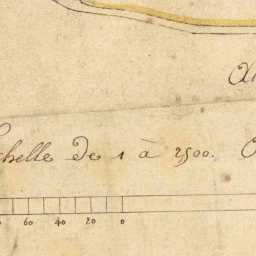 chelle de 1 à 2500.
60 40 20 0